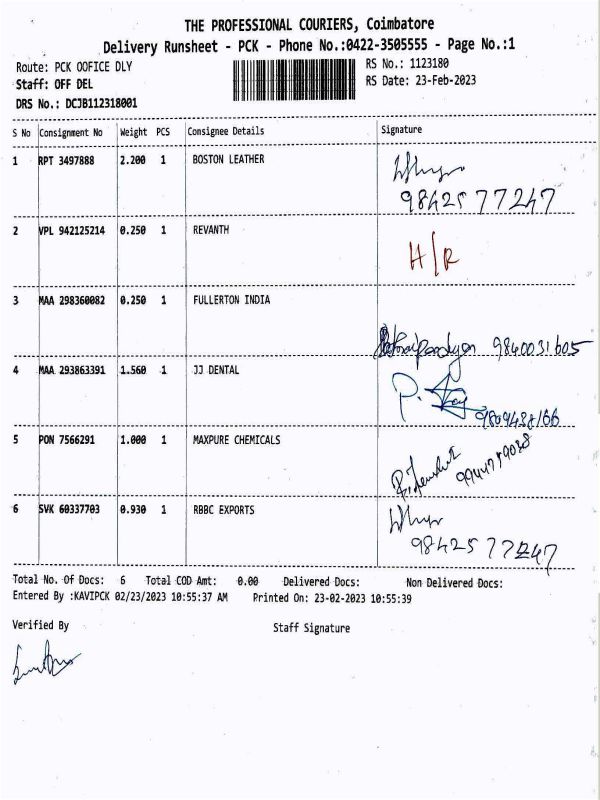 THE PROFESSIONAL COURIERS, Coimbatore
Delivery Runsheet - PCK - Phone No.:0422-3505555 - Page No.:1
Route: PCK OOFICE DLY
RS No.: 1123180
Staff: OFF DEL
RS Date: 23-Feb-2023
DRS No.: DCJB112318001
S No Consignment No Weight PCS Consignee Details Signature
1 RPT 3497888 2.200 1 BOSTON LEATHER
9842577247
2 VPL 942125214 0.250 1 REVANTH
H/R
3 MAA 298360082 0.250 1 FULLERTON INDIA
9840031605
4 MAA 293863391 1.560 1 JJ DENTAL
9809438166
5 PON 7566291 1.000 1 MAXPURE CHEMICALS
6 SVK 60337703 0.930 1 RBBC EXPORTS
9842577247
Total No. Of Docs: 6 Total COD Amt: 0.00 Delivered Docs: Non Delivered Docs:
Entered By :KAVIPCK 02/23/2023 10:55:37 AM Printed On: 23-02-2023 10:55:39
Verified By
Staff Signature